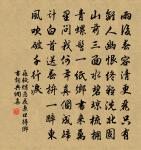 雨後春容清更麗只有
離人幽恨終難洗北固
山前三面水碧瓊梳擁
青螺髻一紙鄉書來萬
里問我何年真個成歸
計白首送春拚一醉東
風吹破千行淚
蘇軾蝶戀花京口得鄉
書